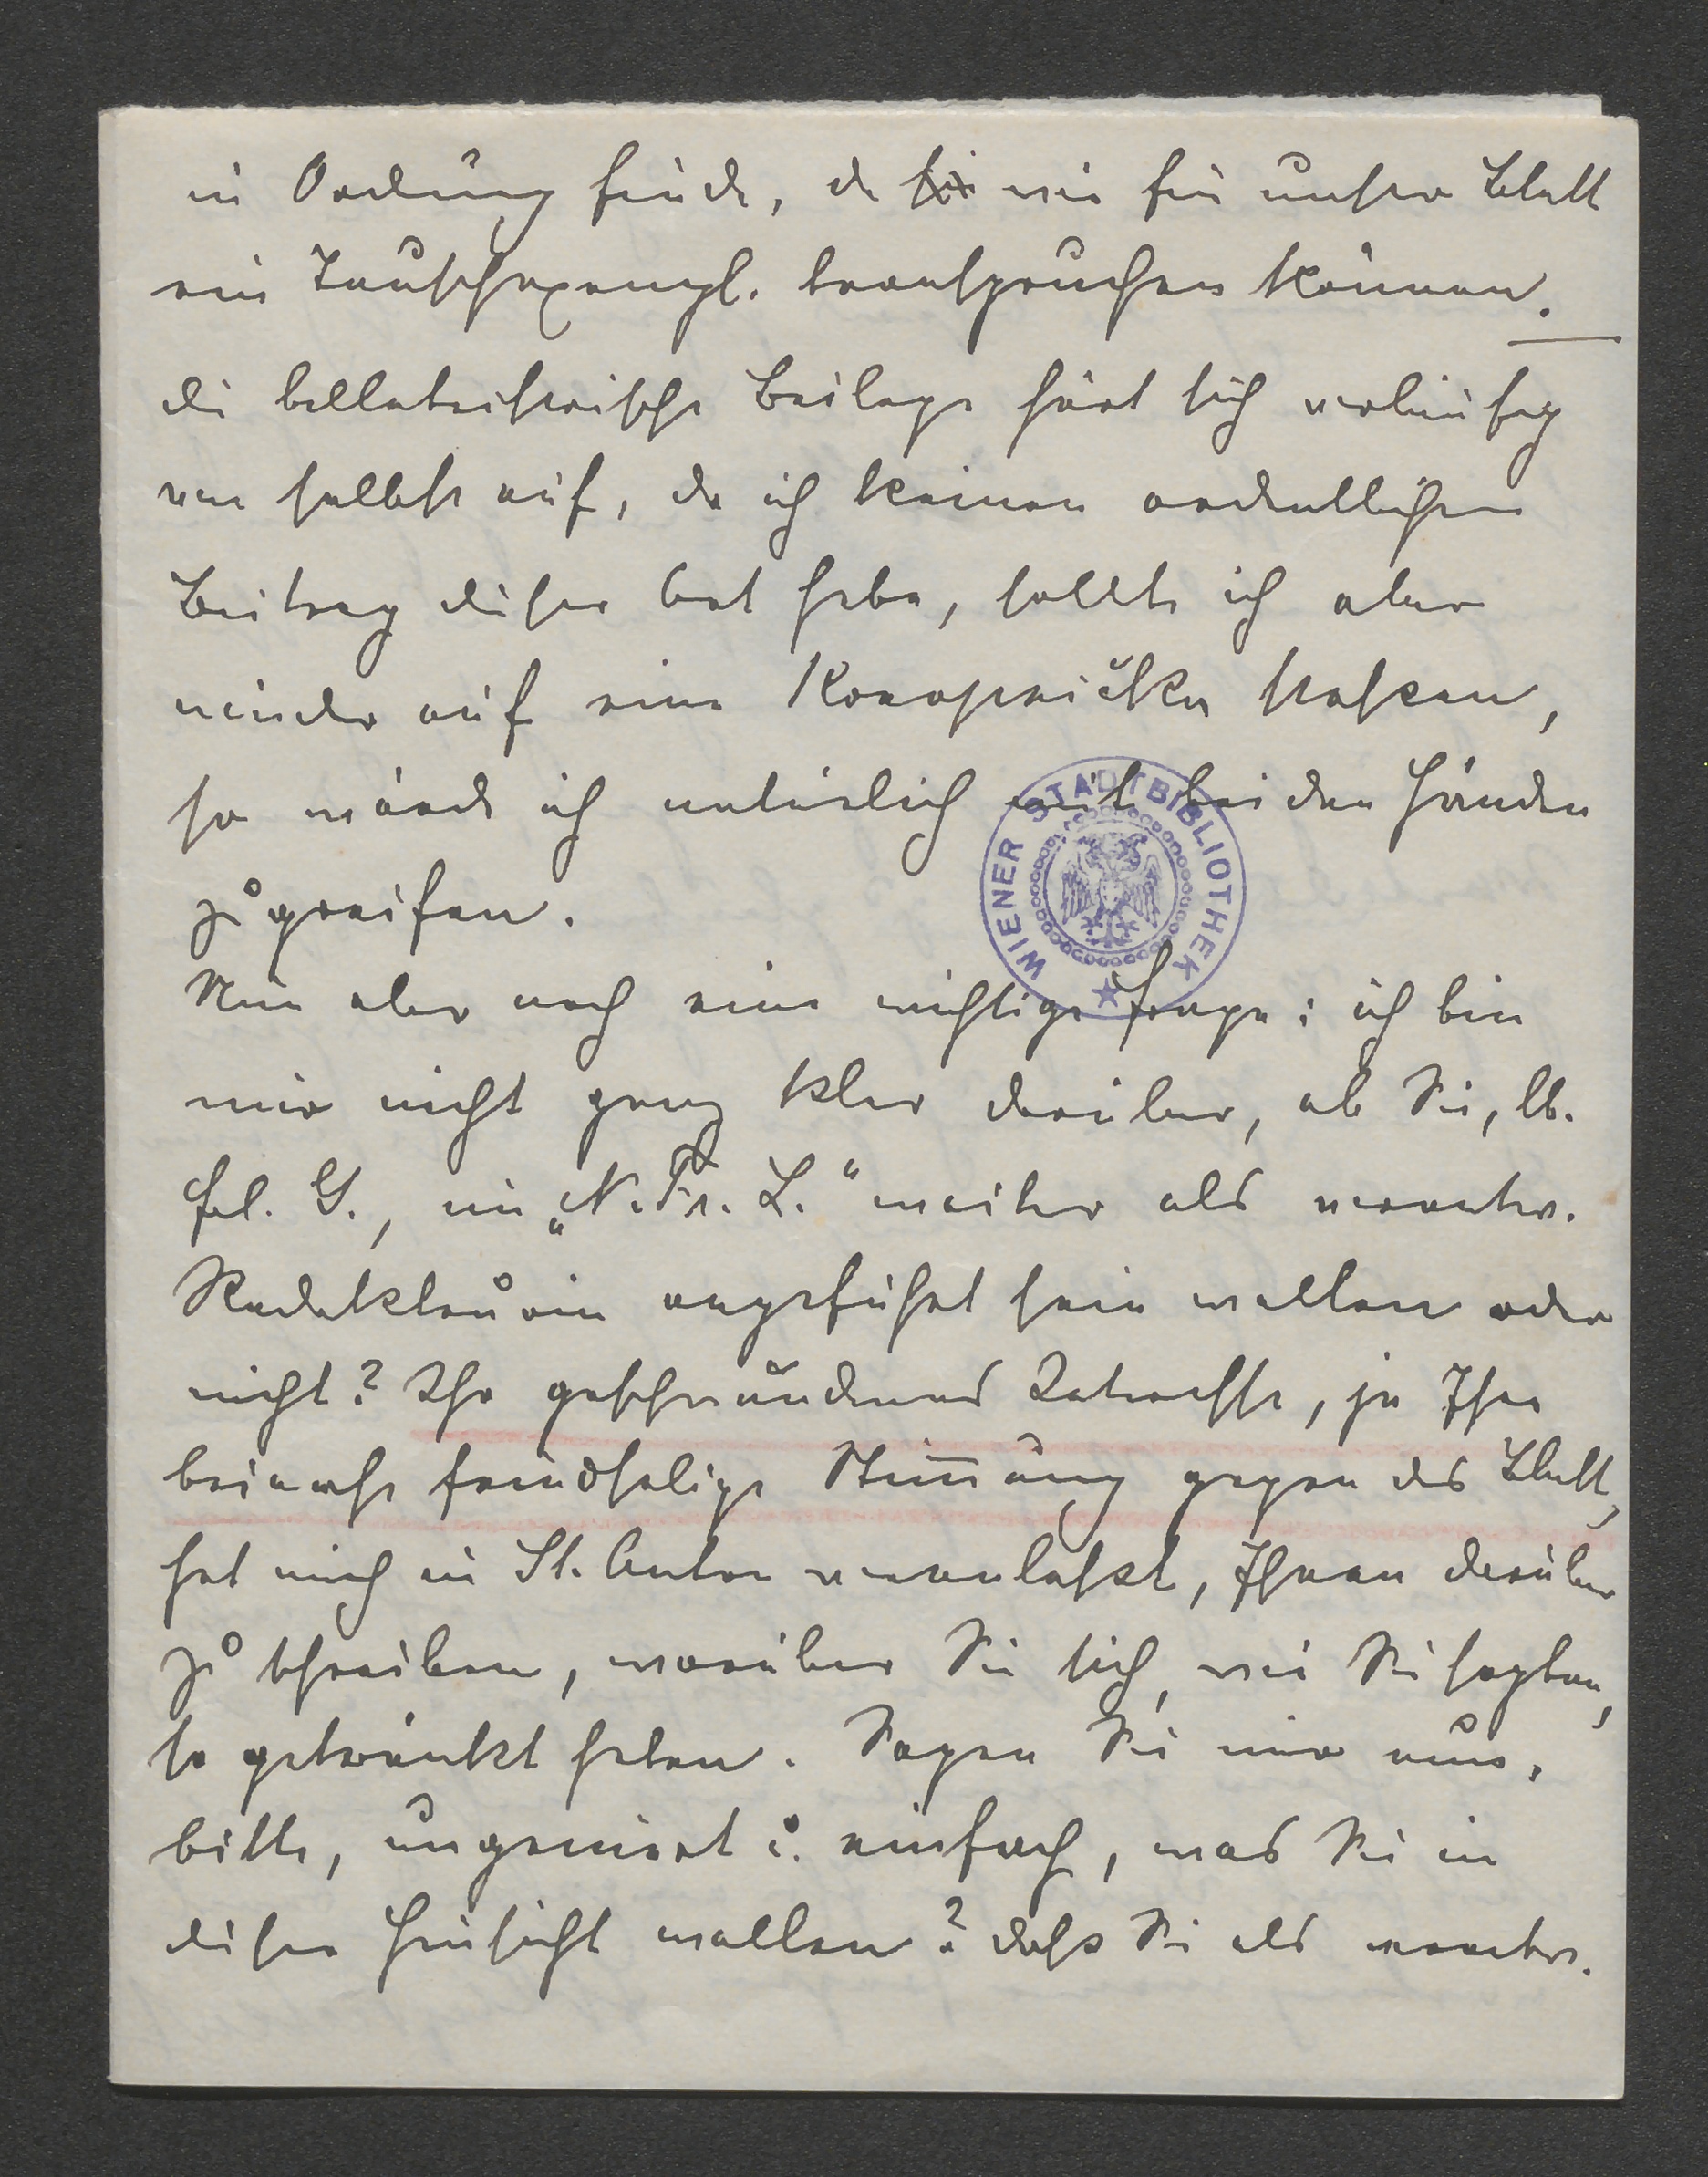 in Ordnung finde, da wir für unser Blatt
ein Tauschexempl. beanspruchen können.
die belletristische Beilage hört sich vorläufig
von selbst auf, da ich keinen ordentlichen
Beitrag dieser Art habe, sollte ich aber
wieder auf eine Konopnička stossen,
so würde ich natürlich mit beiden Händen
zugreifen.
Nun aber noch eine wichtige Frage: ich bin
mir nicht ganz klar darüber, ob Sie, lb.
Frl. G., im „N. Fr. L." weiter als verantw.
Redakteurin angeführt sein wollen oder
nicht? Ihr geschwundenes Interesse, ja Ihre
beinahe feindselige Stimmung gegen das Blatt,
hat mich in St. Anton veranlasst, Ihnen darüber
zu schreiben, worüber Sie sich, wie Sie sagten,
so gekränkt haben. Sagen Sie mir nun,
bitte, ungeniert u. einfach, was Sie in
dieser Hinsicht wollen? dass Sie als verantw.
WIENER STADTBIBLIOTHEK